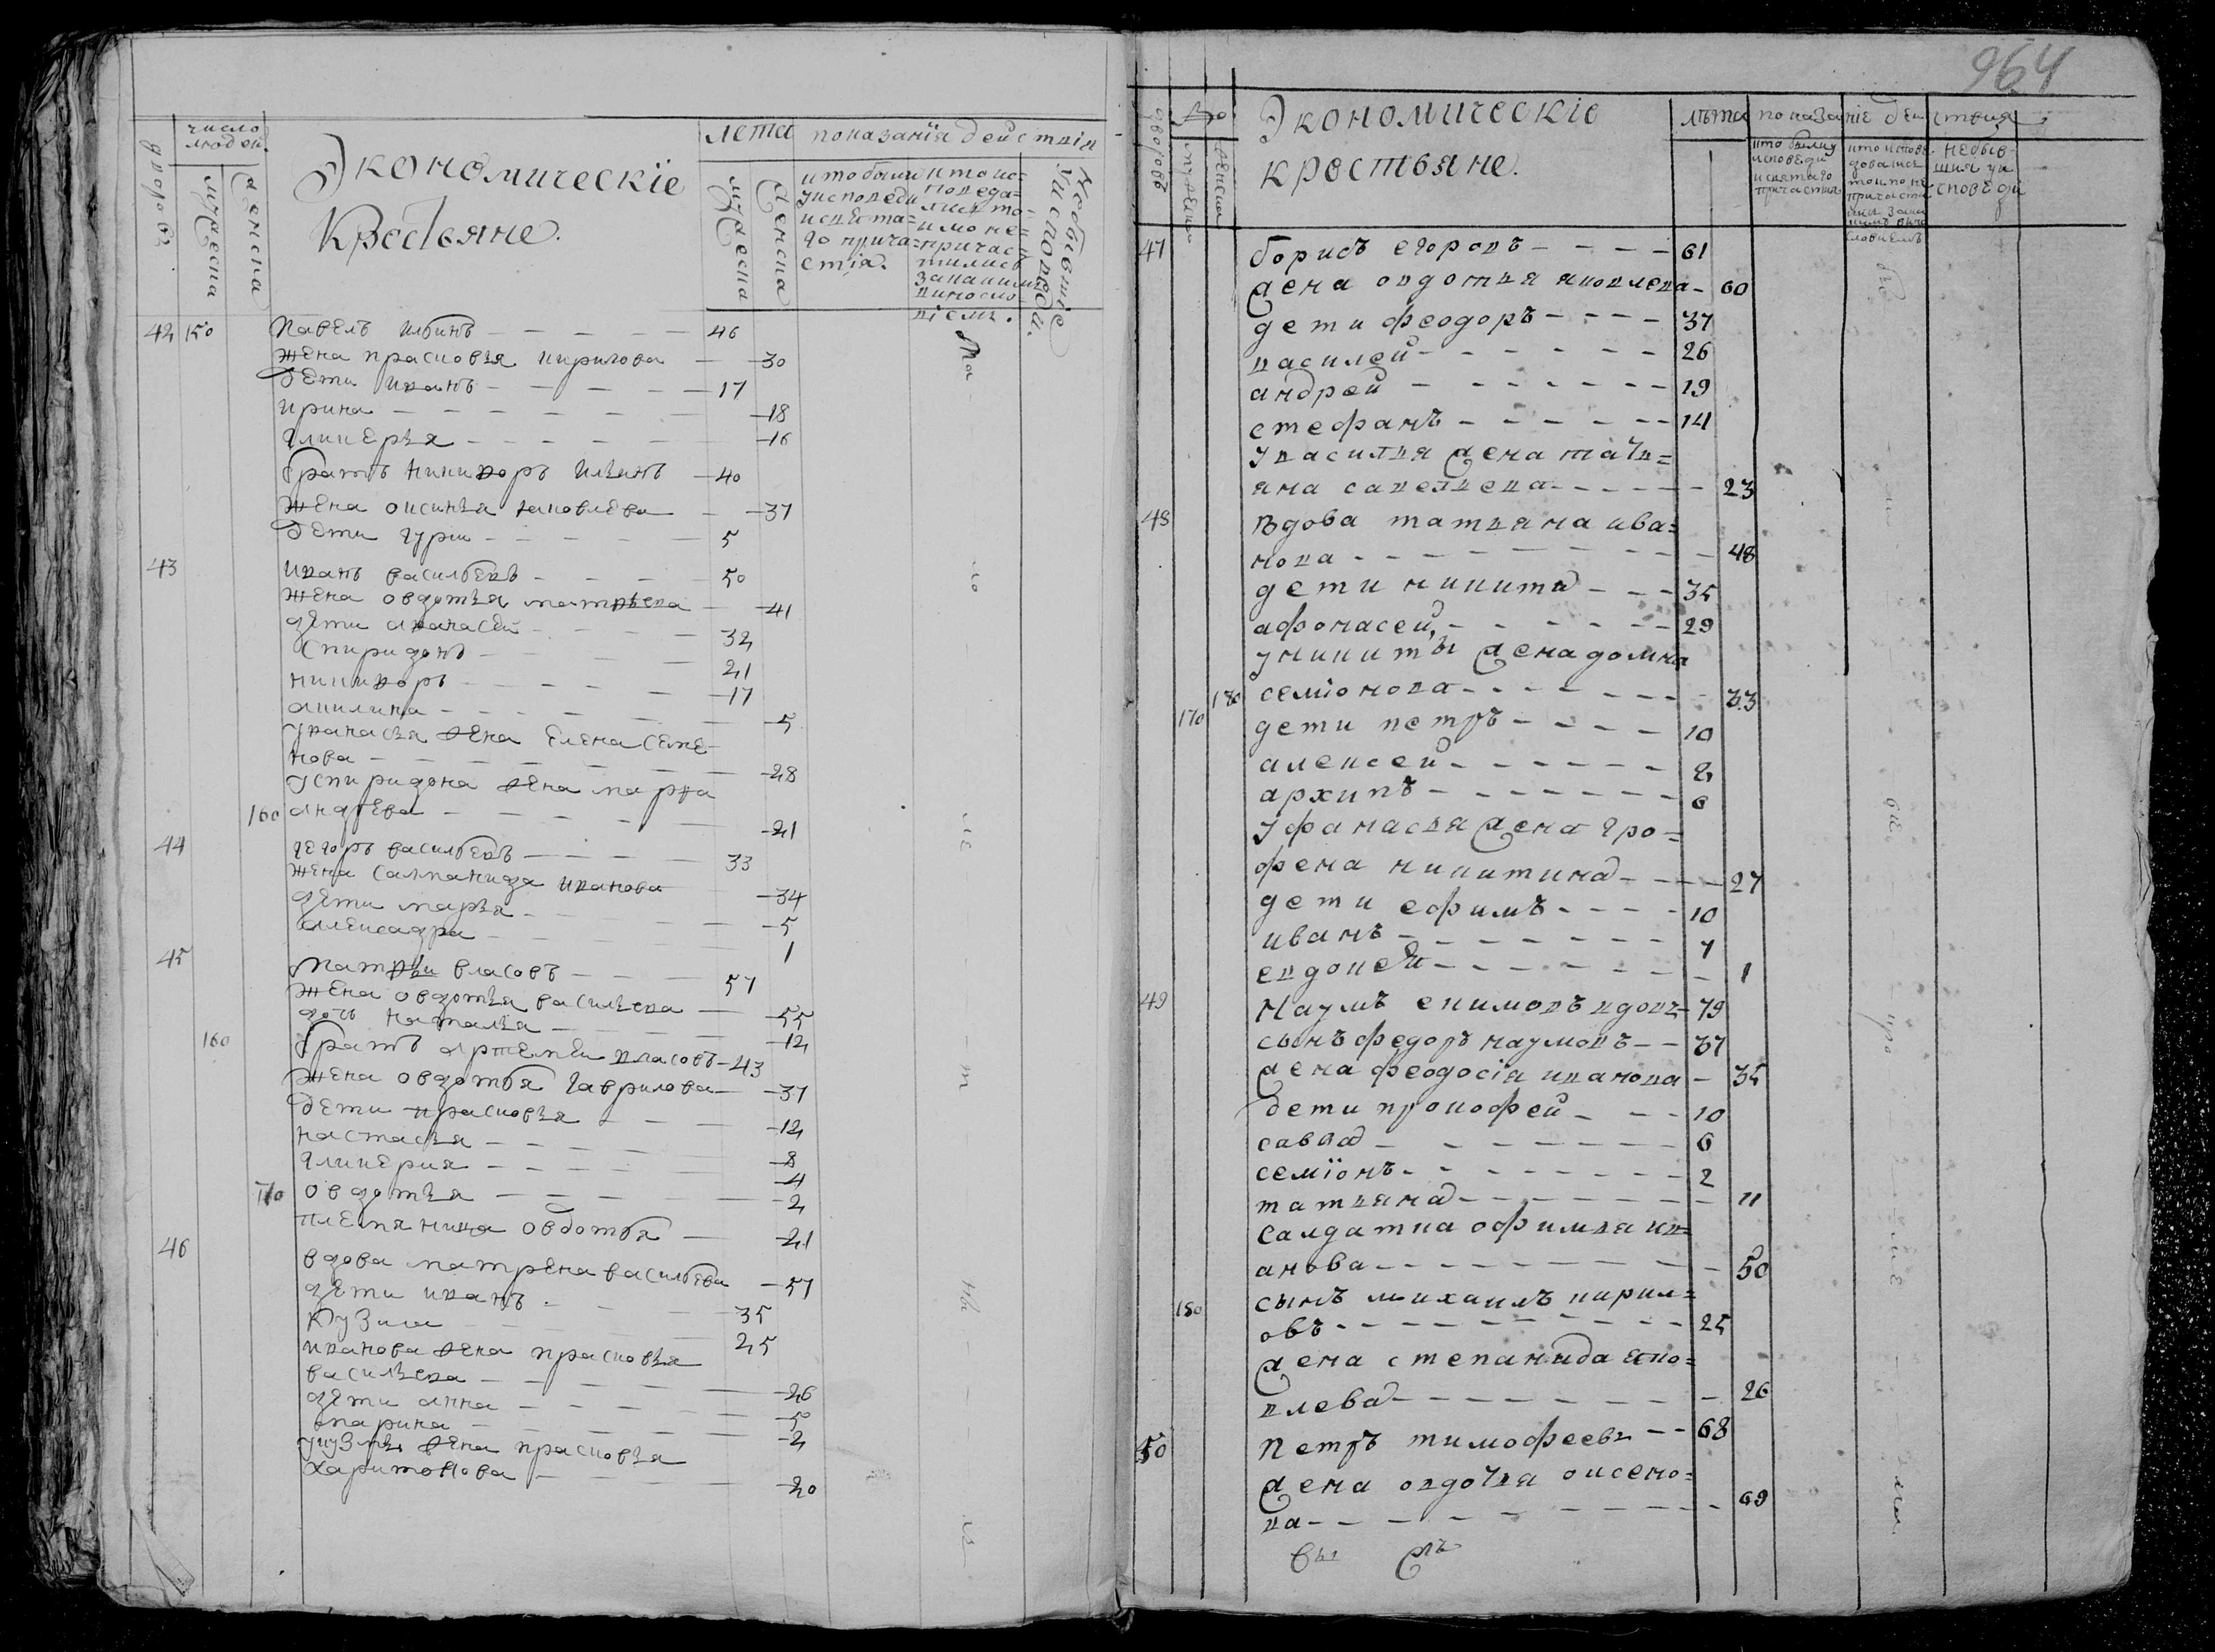 число людей
дворовъ
мужеска
женска
Экономическїе
Крестьяне.
лета
мужеска
женска
показанїя действїя
кто были
у исповеди
и свята=
го прича=
стїя.
кто ис=
поведа=
лися то=
кмо не=
причас
тилися
за каким
винosло
вїемъ.
Небывшїе
у исповеди.
42 150 Павелъ Ильинъ — 46
Жена прасковья кирилова — 30
Дети иванъ — 17
ирина — 18
Гликерья — 16
братъ никифоръ Ильинъ — 40
Жена оксинья яковлева — 37
Дети гури — 5
43 иванъ васильевъ — 50
Жена овдотья матвеева — 41
дети афанасей — 32
Спиридонъ — 21
никифоръ — 17
акилина — 5
уфанасья жена Елена Семе
нова — 28
успиридона жена марфа
160 андреева — 21
44 Егоръ васильевъ — 33
Жена Саломанида иванова — 34
дети марья — 5
алексадра — 1
45 матвеи власовъ — 57
Жена овдотья васильева — 55
дочь наталья — 12
160 братъ артемеи власовъ — 43
Жена овдотья гаврилова — 37
Дети прасковья — 12
настасья — 8
гликерия — 4
170 овдотья — 2
племяница овдотья — 21
46 вдова матрена васильева — 57
дети иванъ — 35
Кузма — 25
иванова жена прасковья
васильева — 26
дети анна — 5
марина — 2
укузмы жена прасковья
харитонова — 20
964
дворовъ
мужеска
женска
Экономическіе
крестьяне.
лѣта
показаніе действия
кто были у
исповеди
и святаго
причастия
кто испове
довался
токмо не
причасти
лися
небыв=
шия уи
споведи
47 борисъ егоровъ — 61
жена овдотья яковлева — 60
дети феодоръ — 37
василей — 26
андрей — 19
стефанъ — 14
увасилья жена татья=
яна савельева — 23
48 вдова татьяна ива=
нова — 48
дети никита — 35
афонасей — 29
уникиты жена домна
180 семіонова — 33
170 дети петръ — 10
алексей — 8
архипъ — 6
уфанасья жена гро=
фена никитина — 27
дети ефимъ — 10
иванъ — 7
евдокея — 1
49 Наумъ екимовъ вдовъ — 79
сынъ федоръ наумовъ — 37
жена феодосія иванова — 35
дети прокофей — 10
савва — 6
семїонъ — 2
татьяна — 11
салдатка офимья ив=
анова — 50
180 сынъ михаилъ кирил=
овъ — 25
жена степанида яко=
влева — 26
50 Петръ тимофеевъ — 68
жена овдотья оксено=
ва — 69